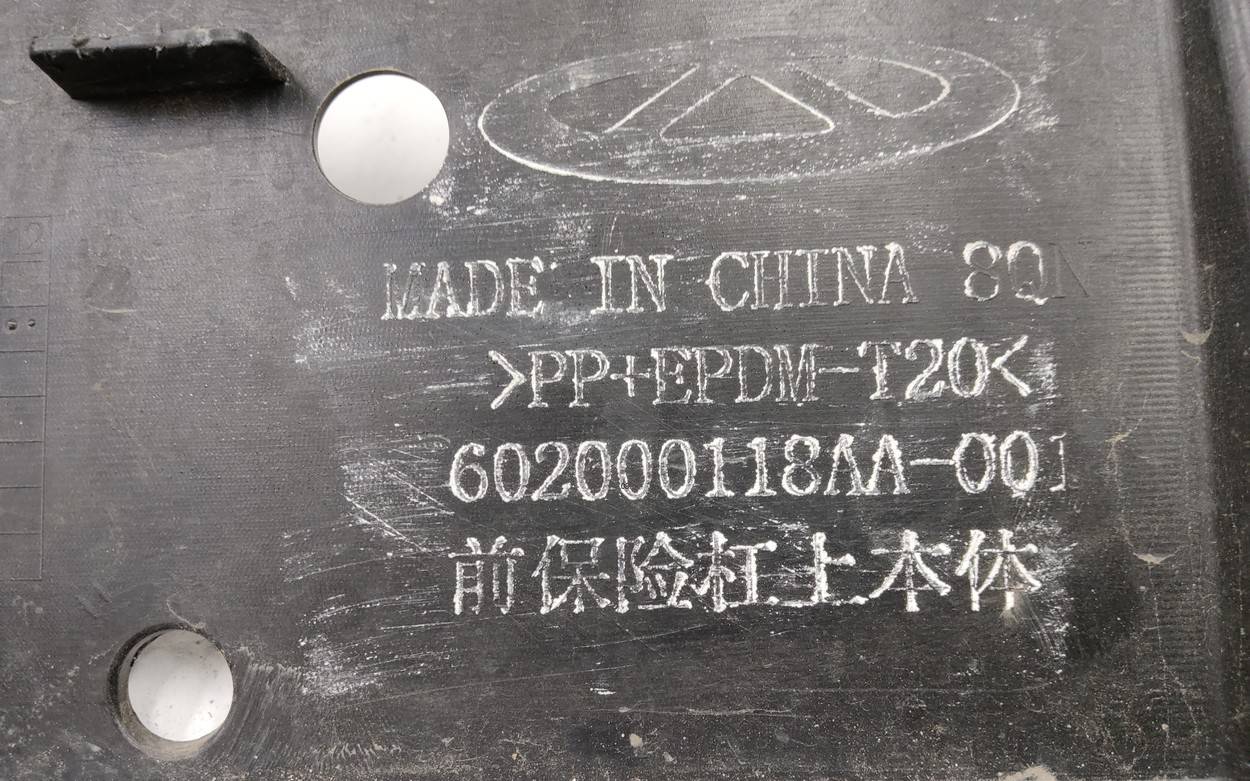 MADE IN CHINA 8QN
>PP+EPDM-T20<
602000118AA-001
前保险杠上本体
2